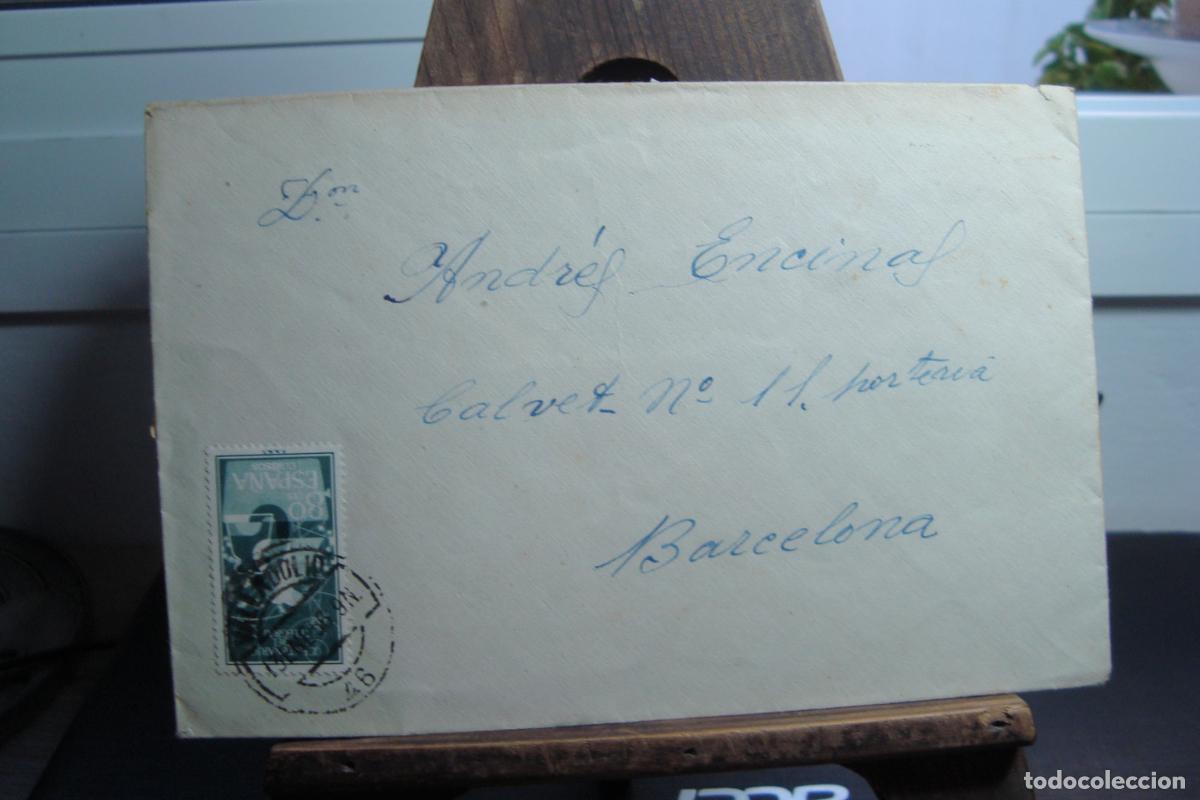 Dⁿ.
Andrés Encinas
Calvet Nº 11, portería
Barcelona
ESPAÑA
CORREOS
80
VALLADOLID
46
todocoleccion